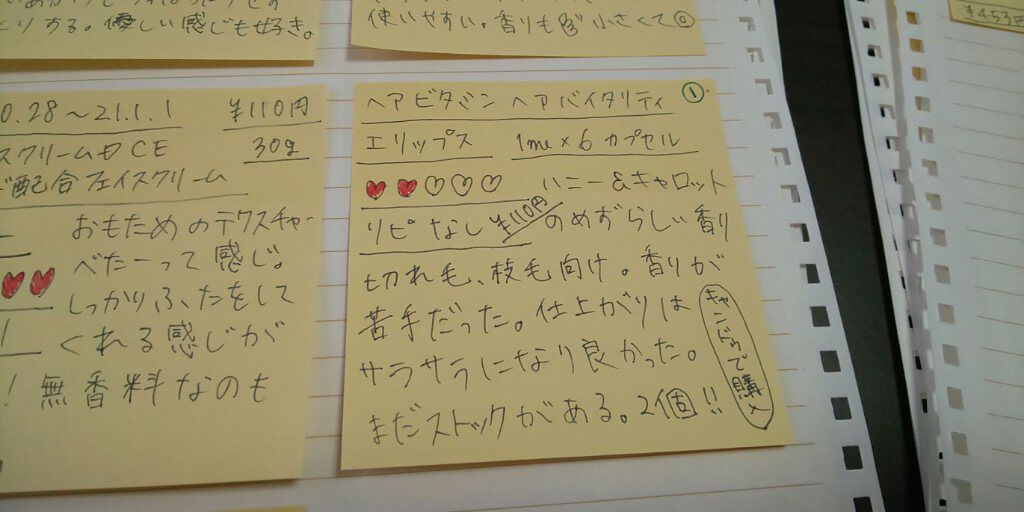 とりする。優しい感じも好き。
使いやすい。香りも 小さくて◎
¥453円
0.28〜21.1.1 ¥110円
スクリーム CE 30g
配合フェイスクリーム
おもためのテクスチャー
べたーって感じ。
しっかりふたをして
くれる感じが
! 無香料なのも
ヘアビタミン ヘアバイタリティ ①
エリップス 1ml×6カプセル
♥♥♡♡♡ ハニー&キャロット
リピなし ¥110円 のめずらしい香り
切れ毛、枝毛向け。香りが
苦手だった。仕上がりは
サラサラになり良かった。
まだストックがある。2個!!
キャンドゥで購入